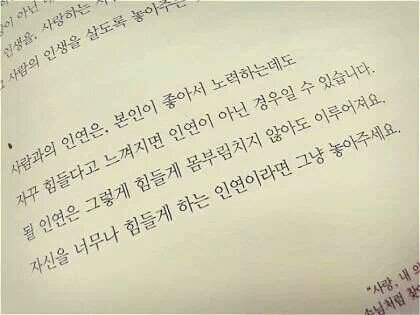 인생을, 사랑하는
사람의 인생을 살도록 놓아주는
사람과의 인연은, 본인이 좋아서 노력하는데도
자꾸 힘들다고 느껴지면 인연이 아닌 경우일 수 있습니다.
될 인연은 그렇게 힘들게 몸부림치지 않아도 이루어져요.
자신을 너무나 힘들게 하는 인연이라면 그냥 놓아주세요.
"사랑, 내
손님처럼